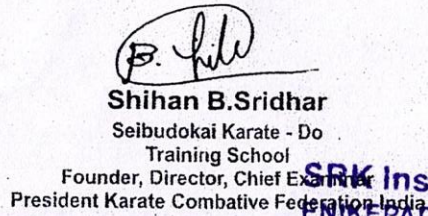 B.
Shihan B.Sridhar
Seibudokai Karate - Do
Training School
Founder, Director, Chief Examiner
SRK Ins
President Karate Combative Federation India
ENIKEPA